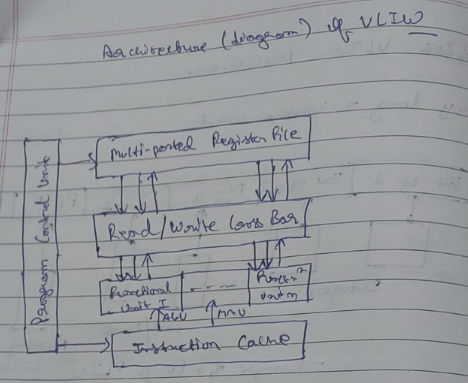 Architecture (diagram) of VLIW
Multi-ported Register File
Program Control Unit
Read/Write Cross Bar
Functional
Unit I
Function
unit n
ALU
MMU
Instruction Cache